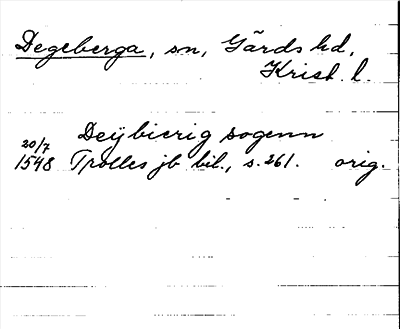 Degeberga, sn, Gärds hd,
Krist. l.
Deÿbierig sogenn
20/7
1548 Trolles jb bil., s. 261. orig.